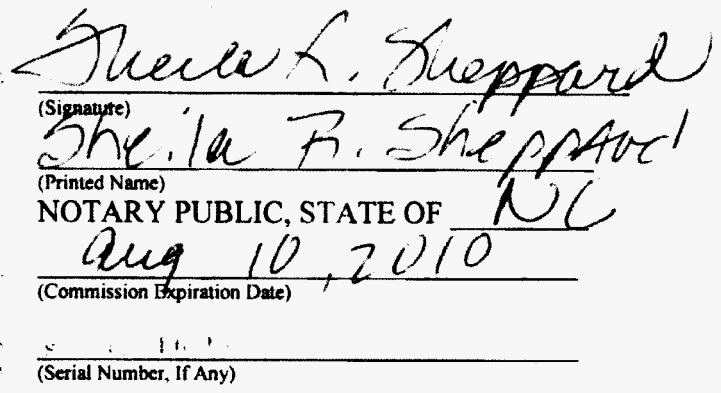 Sheila R. Sheppard
(Signature)
Sheila R. Sheppard
(Printed Name)
NOTARY PUBLIC, STATE OF NC
Aug 10, 2010
(Commission Expiration Date)
(Serial Number, If Any)